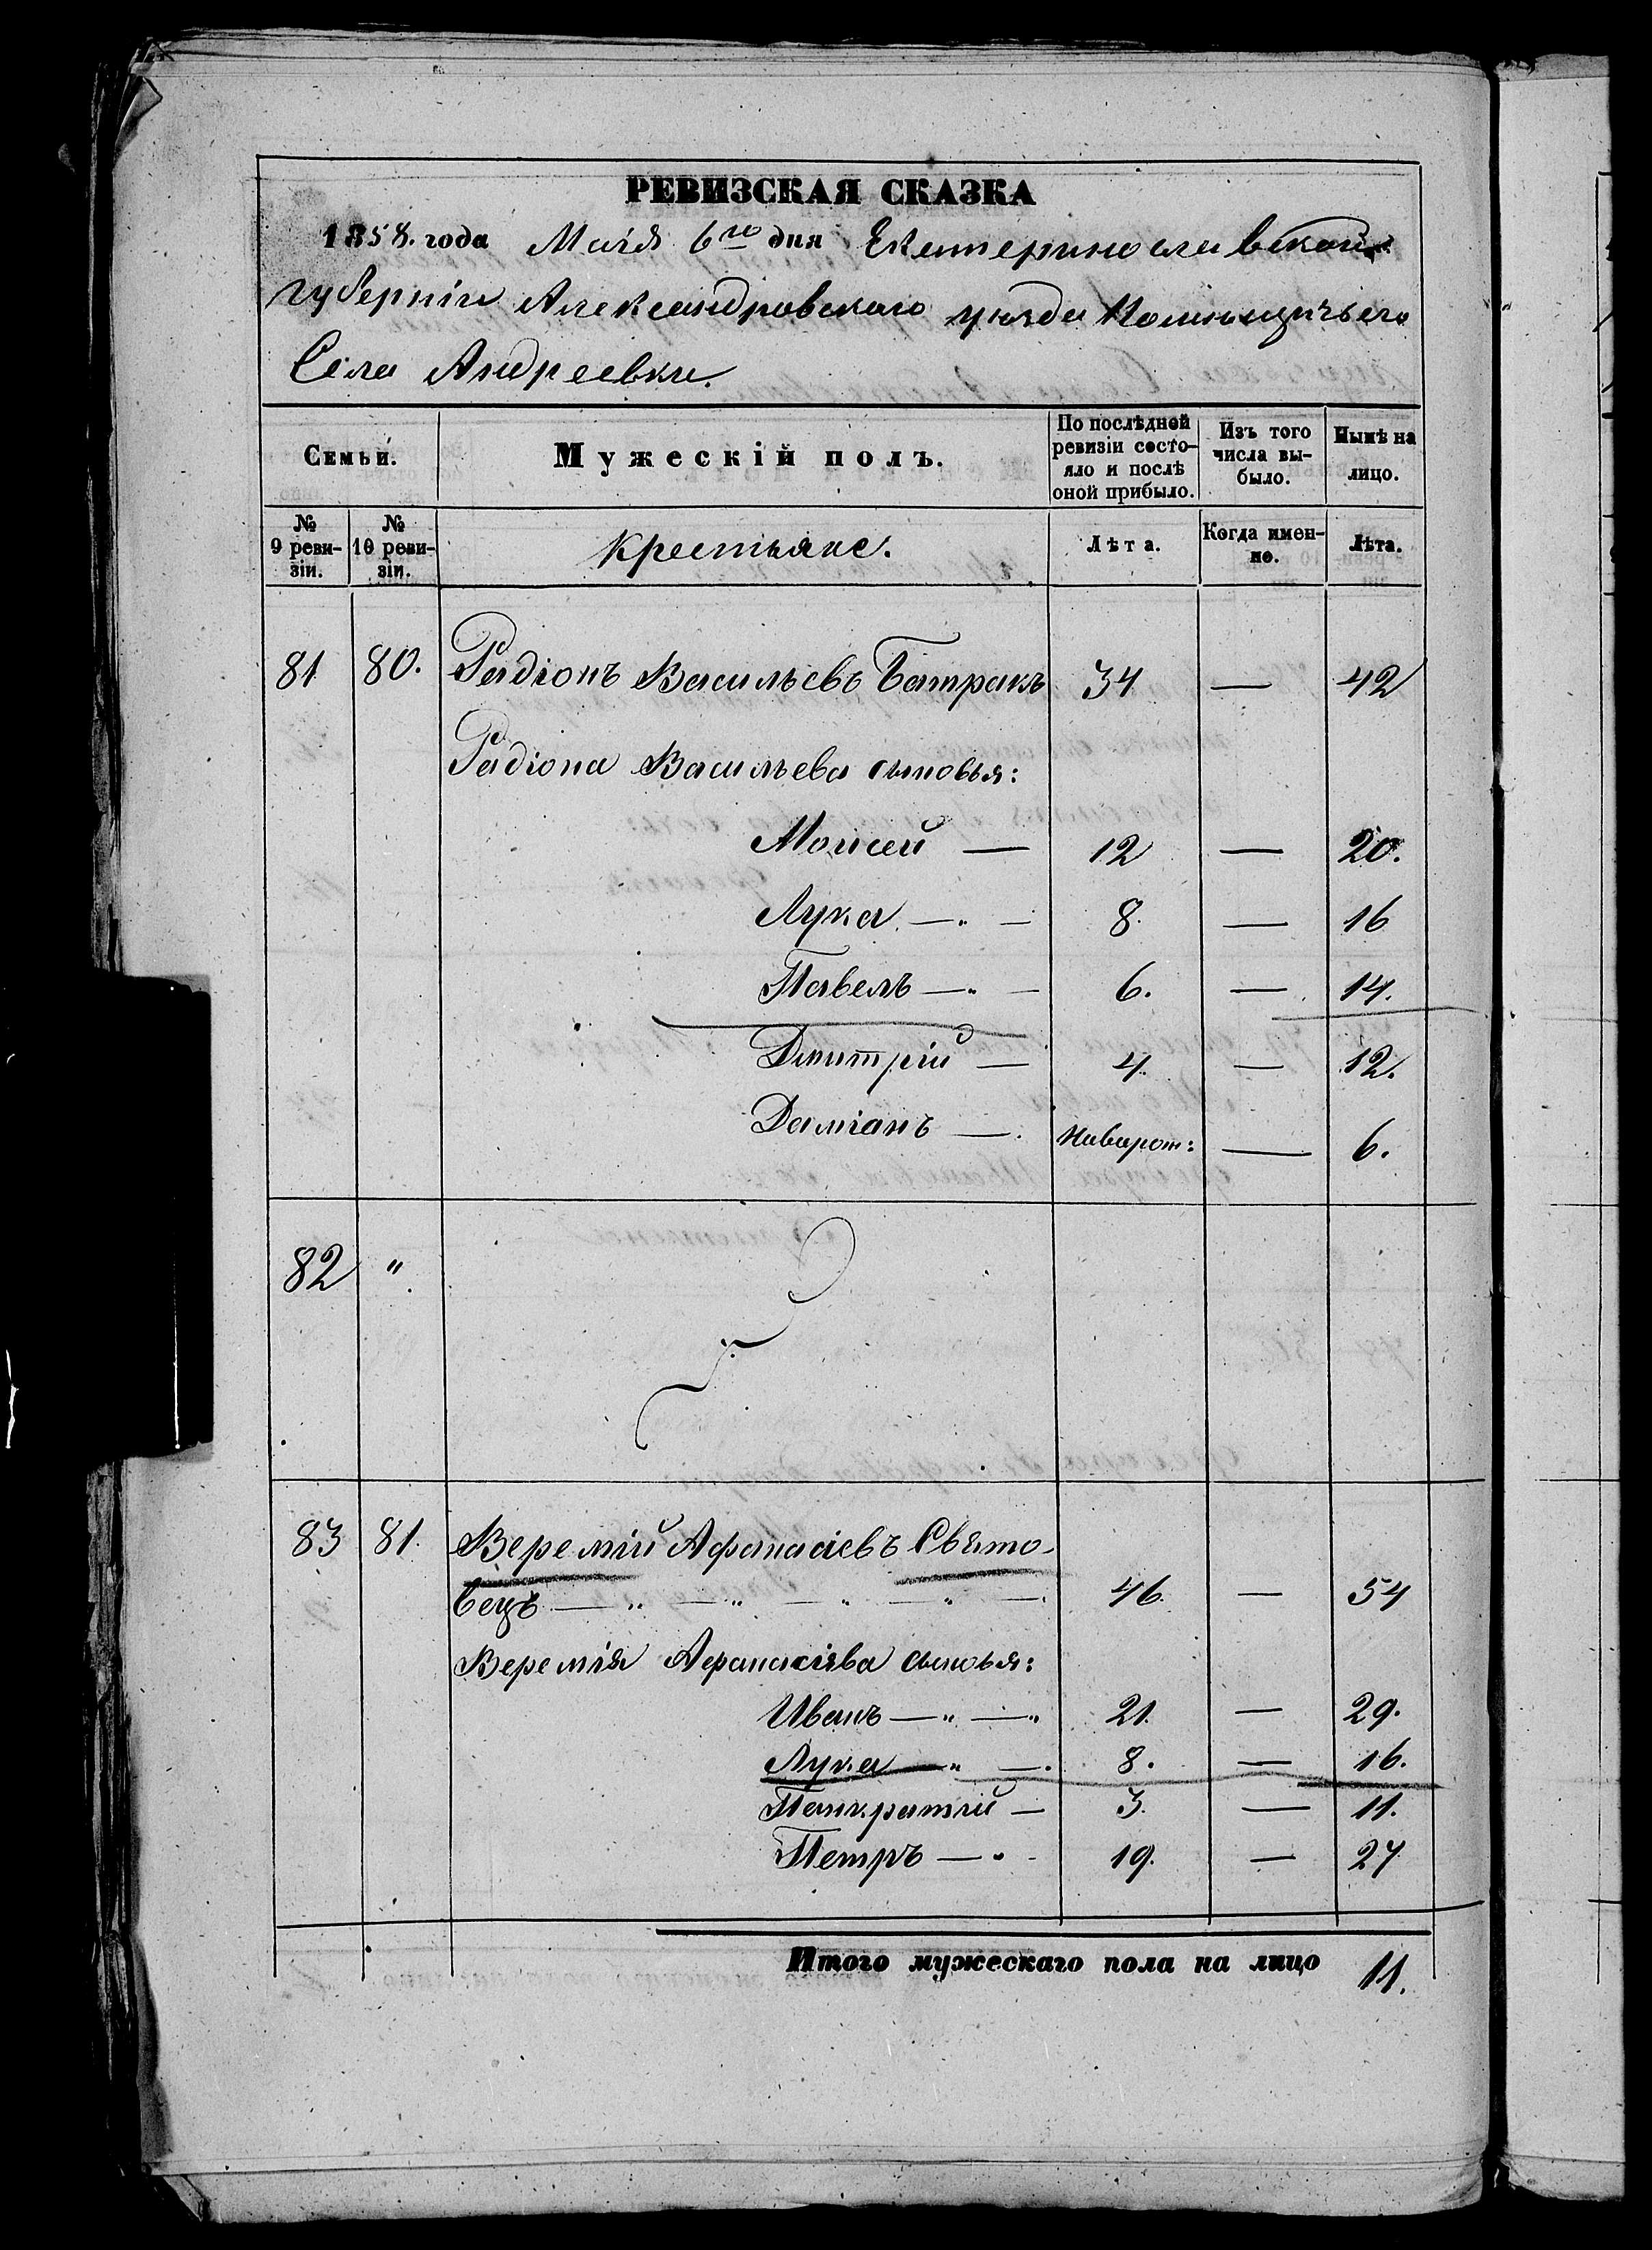 РЕВИЗСКАЯ СКАЗКА
1858. года Маія 6го дня Екатеринославской
губерніи Александровскаго уезда Помѣщичьего
Села Андреевки.
Семьи.
Мужескій полъ.
По послѣдней ревизіи состояло и послѣ оной прибыло.
Изъ того числа выбыло.
Нынѣ на лицо.
№ 9 ревизіи.
№ 10 ревизіи.
Крестьяне.
Лѣта.
Когда именно.
Лѣта.
81 80. Радіонъ Васильевъ Батракъ 34 — 42
Радіона Васильева сыновья:
Моисей — 12 — 20.
Лука — " — 8. — 16
Павелъ — " — 6. — 14.
Дмитрій — 4. — 12.
Даміанъ — Наварож: — 6.
82 "
83 81. Веремій Афанасіевъ Свято-
бецъ — " — " — " — " — 46. — 54
Веремія Афанасіева сыновья:
Иванъ — " — " 21. — 29.
Лука — " — 8. — 16.
Панкратій — 3. — 11.
Петръ — " - 19. — 27
Итого мужескаго пола на лицо 11.